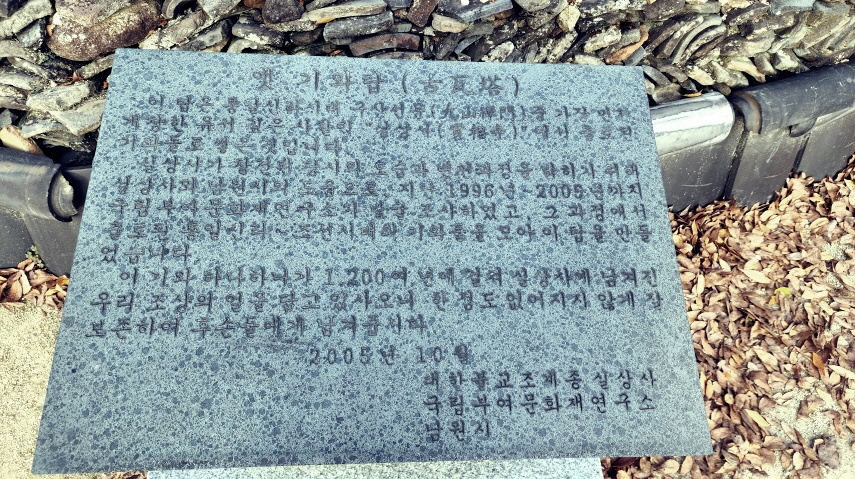 옛 기와탑 (古瓦塔)
이 탑은 통일신라시대 구산선문(九山禪門)중 가장 먼저
개창한 유서 깊은 사찰인 "실상사(實相寺)"에서 출토된
기와들로 쌓은 것입니다.
실상사가 창건된 당시의 모습과 변천과정을 밝히기 위해
실상사와 남원시의 도움으로 지난 1996년~2005년까지
국립부여문화재연구소가 발굴 조사하였고, 그 과정에서
출토된 통일신라~조선시대의 기와들을 모아 이 탑을 만들
었습니다.
이 기와 하나하나가 1,200여 년에 걸쳐 실상사에 남겨진
우리 조상의 얼을 담고 있사오니 한 점도 없어지지 않게 잘
보존하여 후손들에게 남겨줍시다.
2005년 10월
대한불교조계종실상사
국립부여문화재연구소
남원시